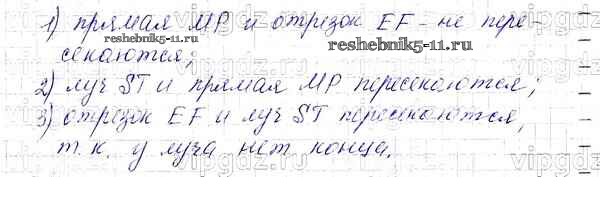 1) прямая MP и отрезок EF - не пере-
reshebnik5-11.ru
reshebnik5-11.ru
секаются;
2) луч ST и прямая MP пересекаются;
3) отрезок EF и луч ST пересекаются,
т.к. у луча нет конца.
vipgdz.ru